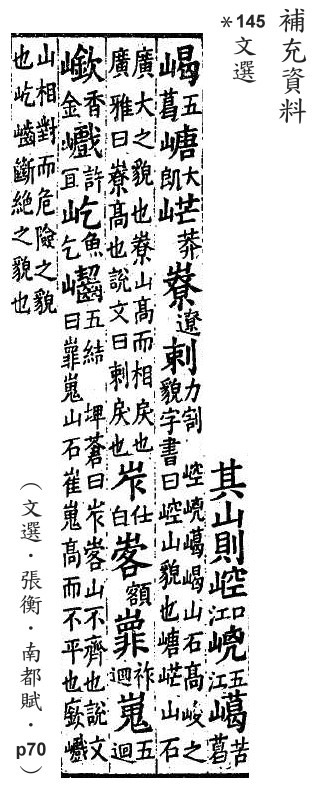 補充資料
*145
文選
其山則崆口江嶢五江嶱苦葛
嵑五葛嵣大朗㟐莽嶚遼剌力割崆嶢嶱嵑山石高峻之
貌字書曰崆山貌也嵣㟐山石
廣大之貌也嶚山高而相戾也
廣雅曰嶚高也說文曰剌戾也岝仕白峉額嶵祚迴嵬五迴
嶔香金巇許宜屹魚乞𡾲五結埤蒼曰岝峉山不齊也說文
曰嶵嵬山石崔嵬高而不平也嶔巇
山相對而危險之貌
也屹𡾲斷絕之貌也
(文選・張衡・南都賦・p70)